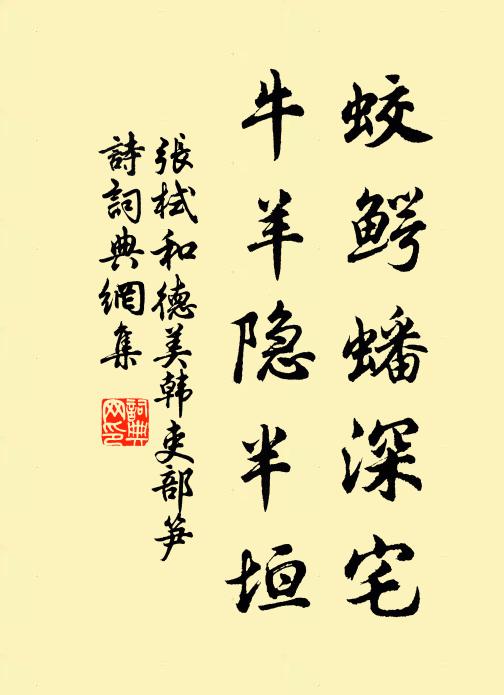 蛟鳄蟠深宅
牛羊隐半垣
張栻和德美韩吏部笋
詩詞典網集
詞典网印